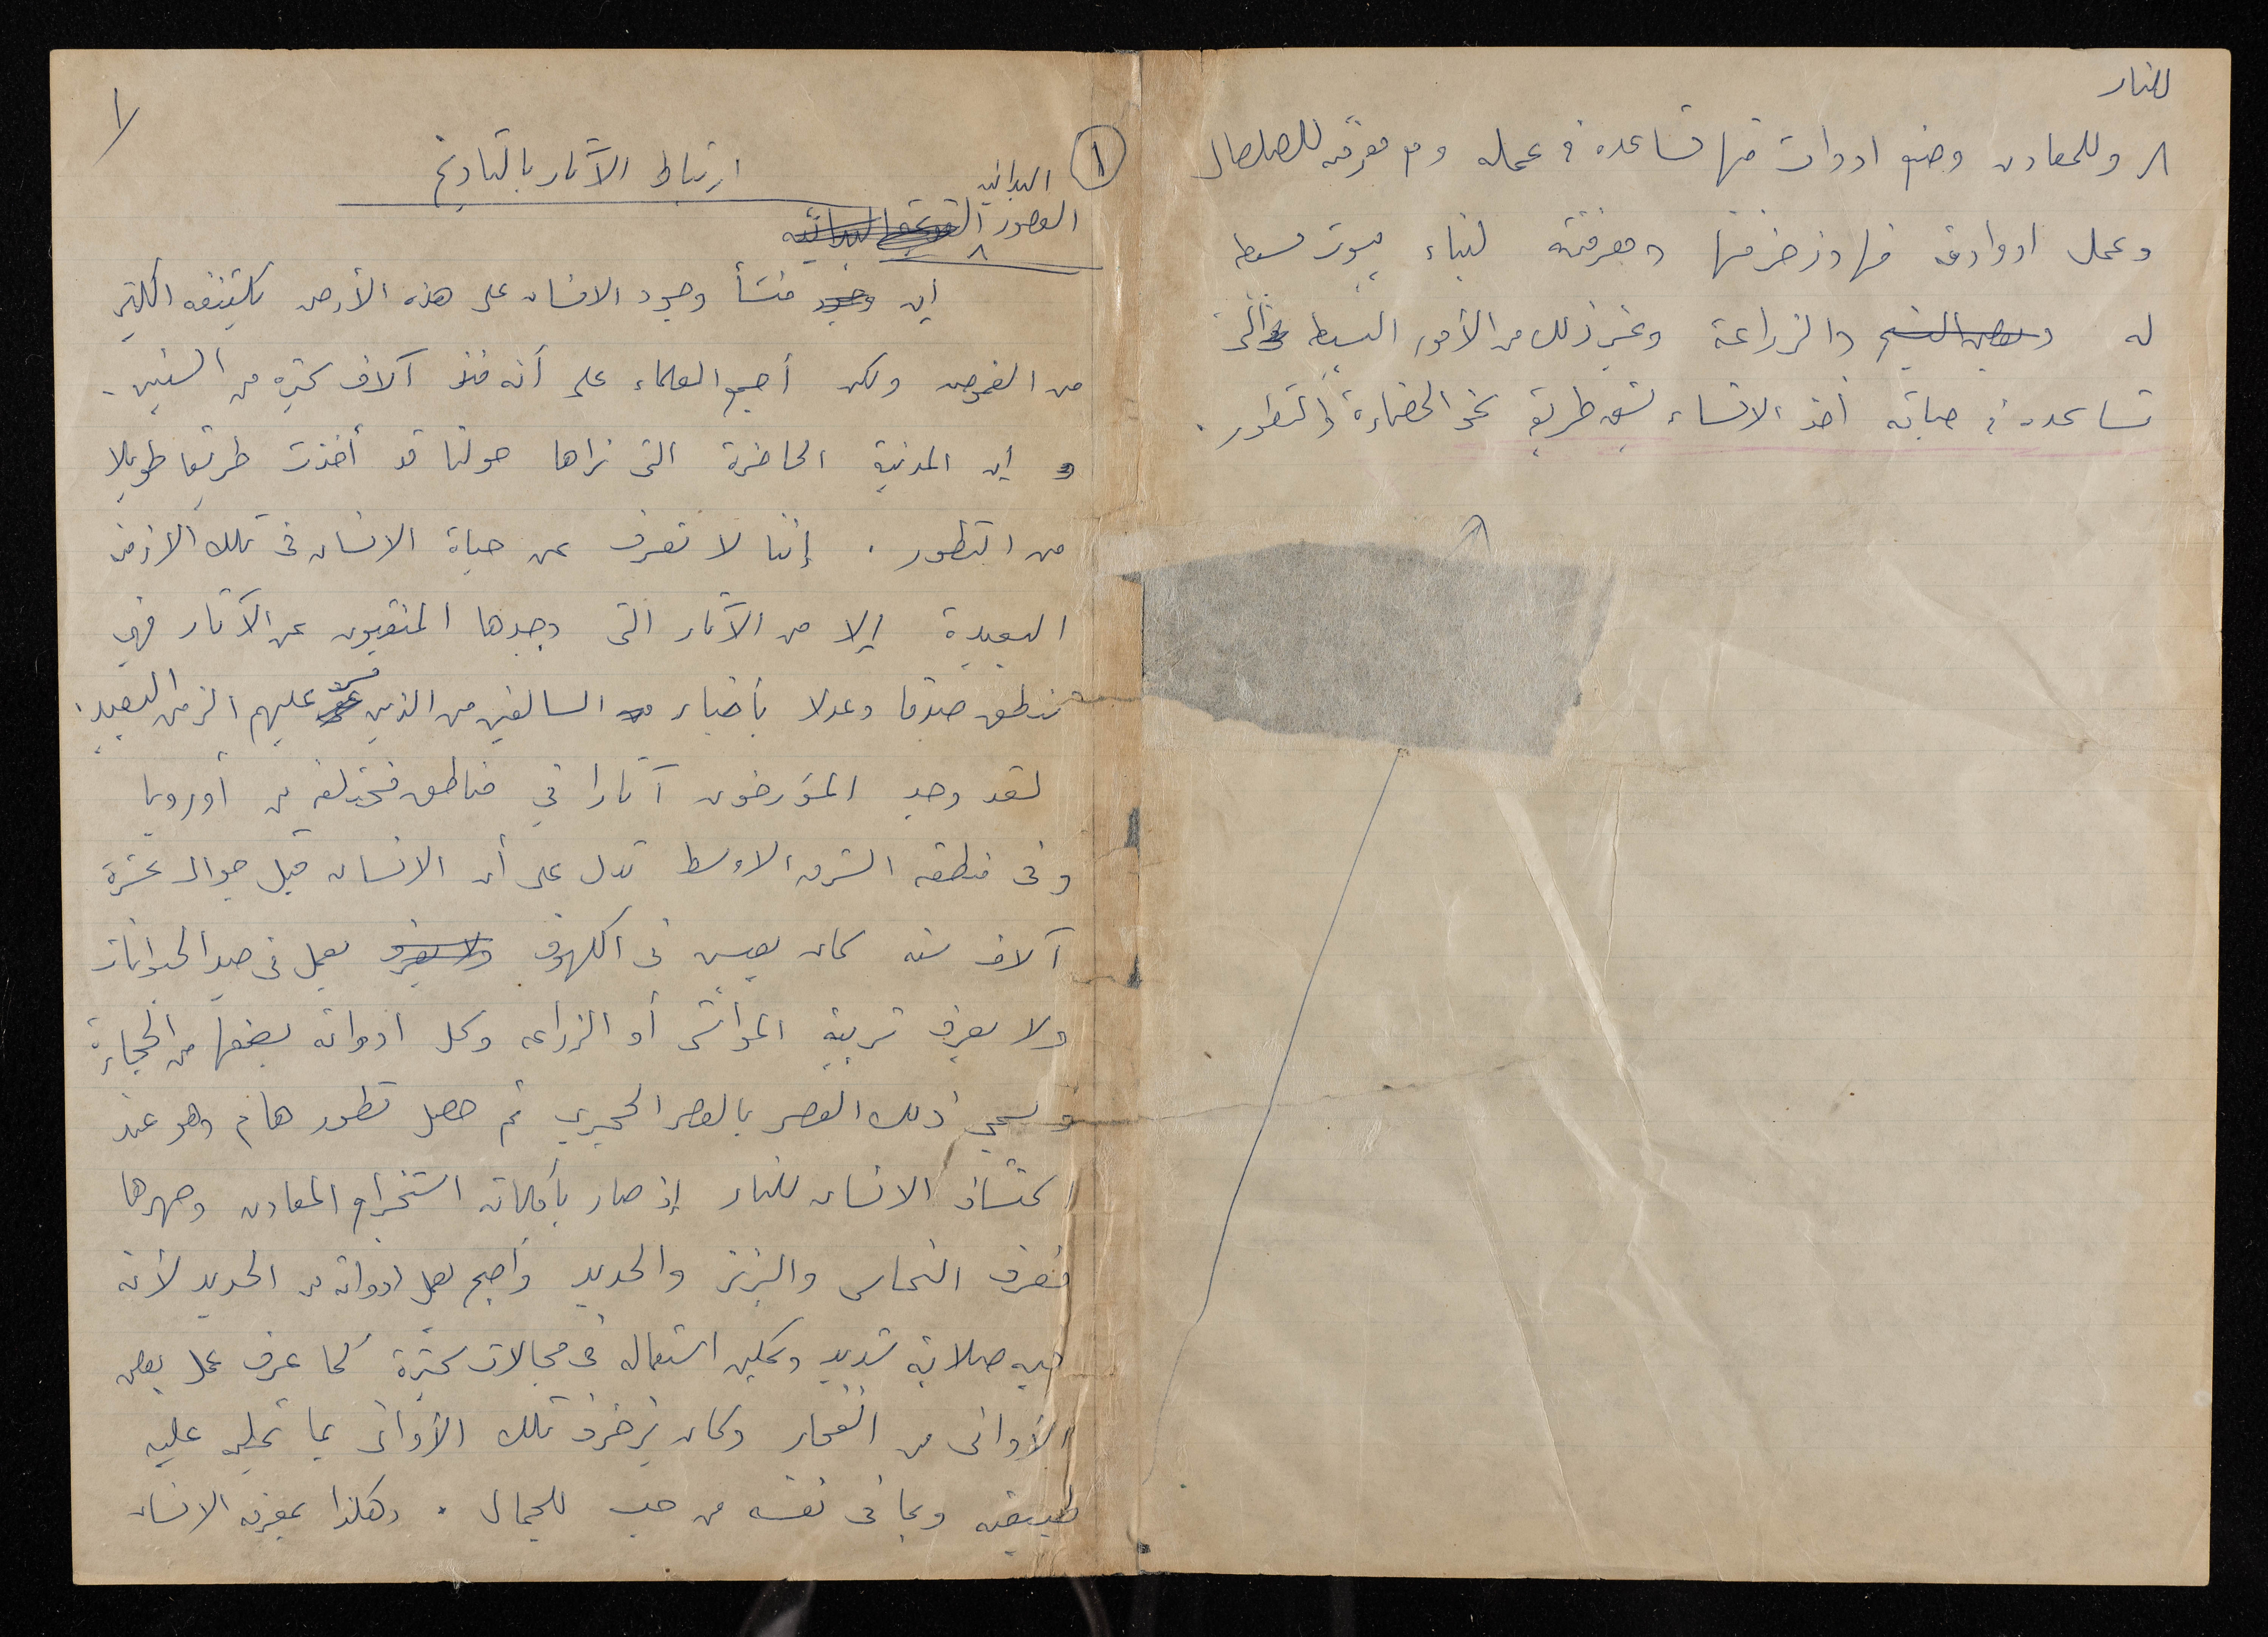 ١
ارتباط الآثار بالتاريخ
العصور البدائيه
أن منشأ وجود الانسان على هذه الأرض تكتنفه الكثير
من الغموض ولكن أجمع العلماء على أنه منذ آلاف كثيره من السنين .
و ان المدنية الحاضرة التى نراها حولنا قد أخذت طريقا طويلا
من التطور . إننا لا نعرف عن حياة الانسان فى تلك الازمنه
البعيدة إلا من الآثار التى وجدها المنقبون عن الآثار فهي
تنطق صدقا وعدلا بأخبار السالفين من الذين مر عليهم الزمن البعيد .
لقد وجد المؤرخون آثارا في مناطق مختلفه من أوروبا
وفى منطقه الشرق الاوسط تدل على أن الانسان قبل حوالى عشرة
آلاف سنه كان يعيش فى الكهوف يعمل فى صيد الحيوانات
ولا يعرف تربية المواشى أو الزراعه وكل ادواته يصنعها من الحجارة
ويسمي ذلك العصر بالعصر الحجري ثم حصل تطور هام وهو عند
اكتشاف الانسان للنار إذ صار بأمكانه استخراج المعادن وصهرها
فعرف النحاس والبرنز والحديد وأصبح يعمل ادواته من الحديد لأنه
فيه صلابة شديد ويمكن استعماله فى مجالات كثيرة كما عرف عمل بعض
الأوانى من الفخار وكان يزخرف تلك الأوانى بما تمليه عليه
طبيعته وبما فى نفسه من حب للجمال . وهكذا بمعرفه الانسان
للنار
وللمعادن وصنع ادوات منها تساعده فى عمله ومع معرفه للصلصال
وعمل ادواته منها وزخرفتها ومعرفته لبناء بيوت بسيطه
له والزراعة وغير ذلك من الأمور البسيطه التى
تساعده فى حياته أخذ الانسان يشق طريقه نحو الحضارة والتطور .